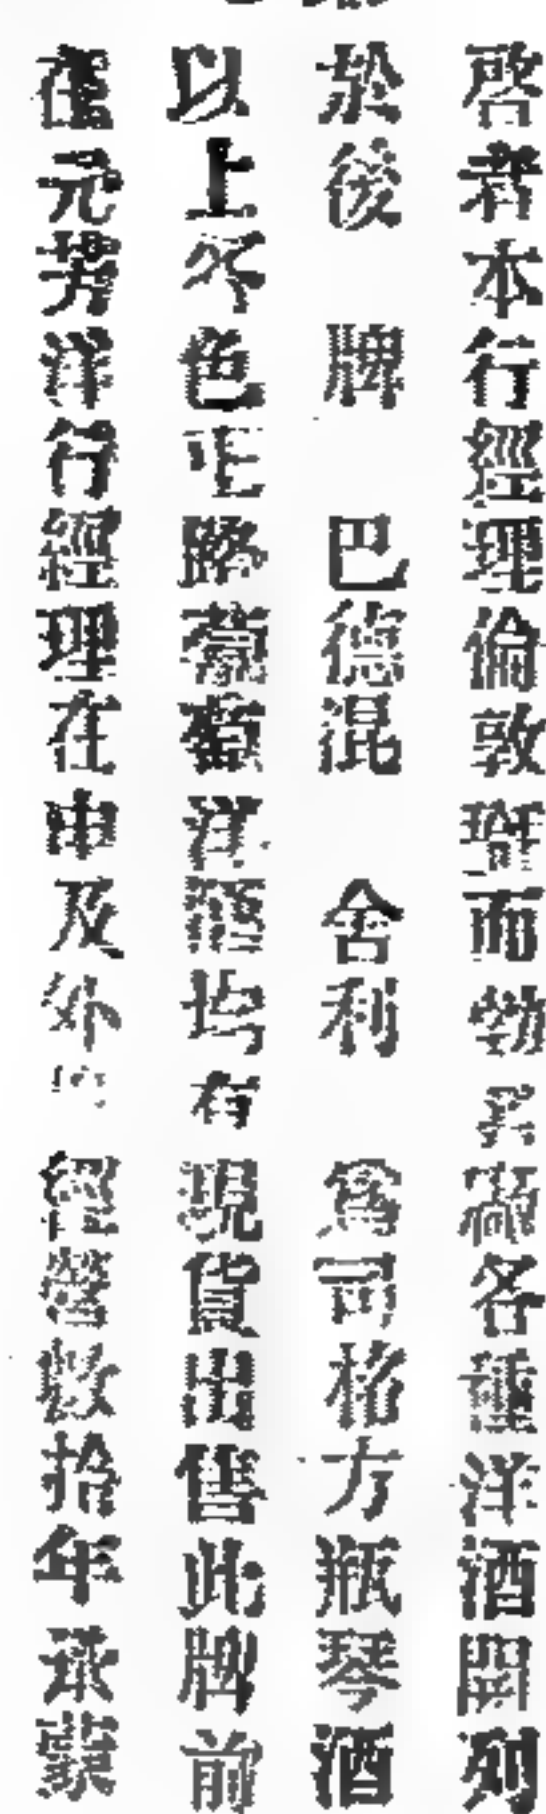 啓者本行經理倫敦 而勃 各種洋酒開列
於後 牌 巴德混 舍利 爲司格方瓶琴酒
以上各色 路 洋酒均有現貨出售此牌前
在元芳洋行經理在申及外 經營數拾年承蒙